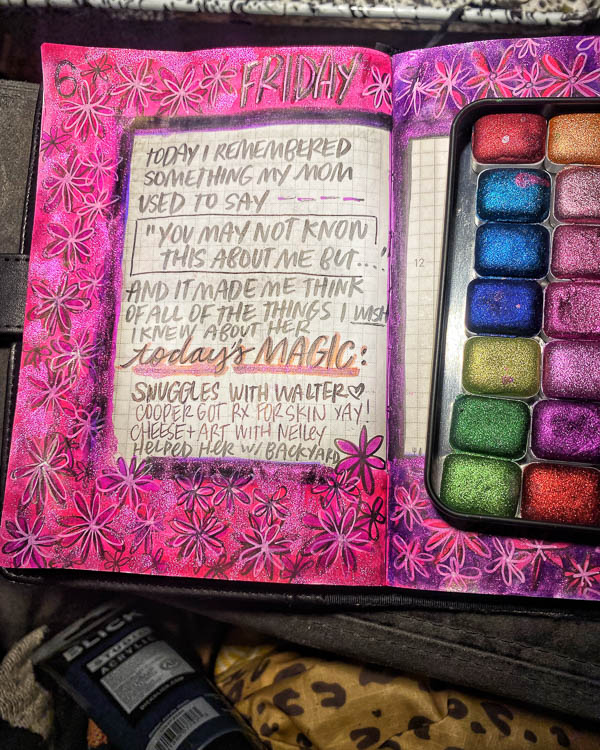 6
FRIDAY
TODAY I REMEMBERED
SOMETHING MY MOM
USED TO SAY ----
"YOU MAY NOT KNOW
THIS ABOUT ME BUT...."
AND IT MADE ME THINK
OF ALL OF THE THINGS I WISH
I KNEW ABOUT HER
today's MAGIC:
SNUGGLES WITH WALTER♡
COOPER GOT RX FOR SKIN YAY!
CHEESE + ART WITH NEILEY
HELPED HER W/ BACKYARD
12
BLICK
STUDIO
ACRYLIC